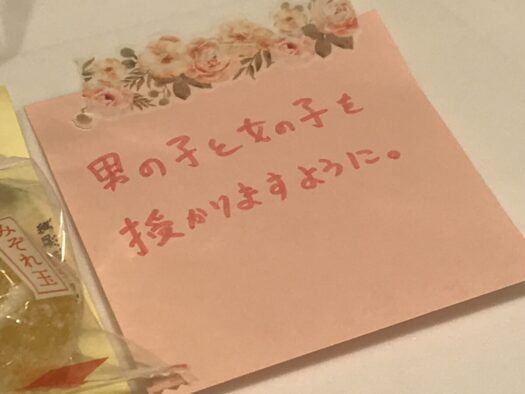 男の子と女の子を
授かりますように。
みぞれ玉